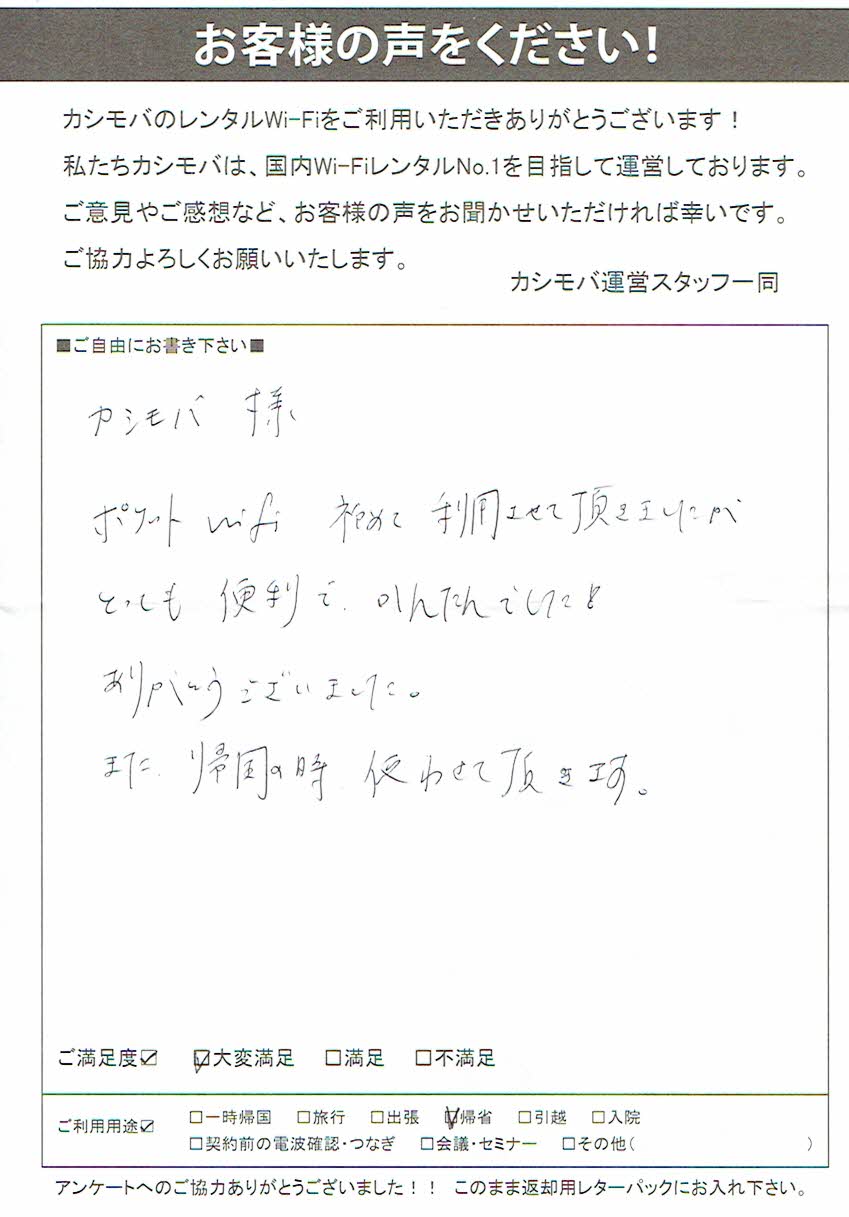 お客様の声をください!
カシモバのレンタルWi-Fiをご利用いただきありがとうございます！
私たちカシモバは、国内Wi-FiレンタルNo.1を目指して運営しております。
ご意見やご感想など、お客様の声をお聞かせいただければ幸いです。
ご協力よろしくお願いいたします。
カシモバ運営スタッフ一同
■ご自由にお書き下さい■
カシモバ 様
ポケット wifi 初めて 利用させて頂きましたが
とっても 便利で、かんたんでした
ありがとうございました。
また、帰国の時 使わせて頂きます。
ご満足度☑ ☑大変満足 □満足 □不満足
ご利用用途☑ □一時帰国 □旅行 □出張 ☑帰省 □引越 □入院
□契約前の電波確認・つなぎ □会議・セミナー □その他( )
アンケートへのご協力ありがとうございました！！ このまま返却用レターパックにお入れ下さい。